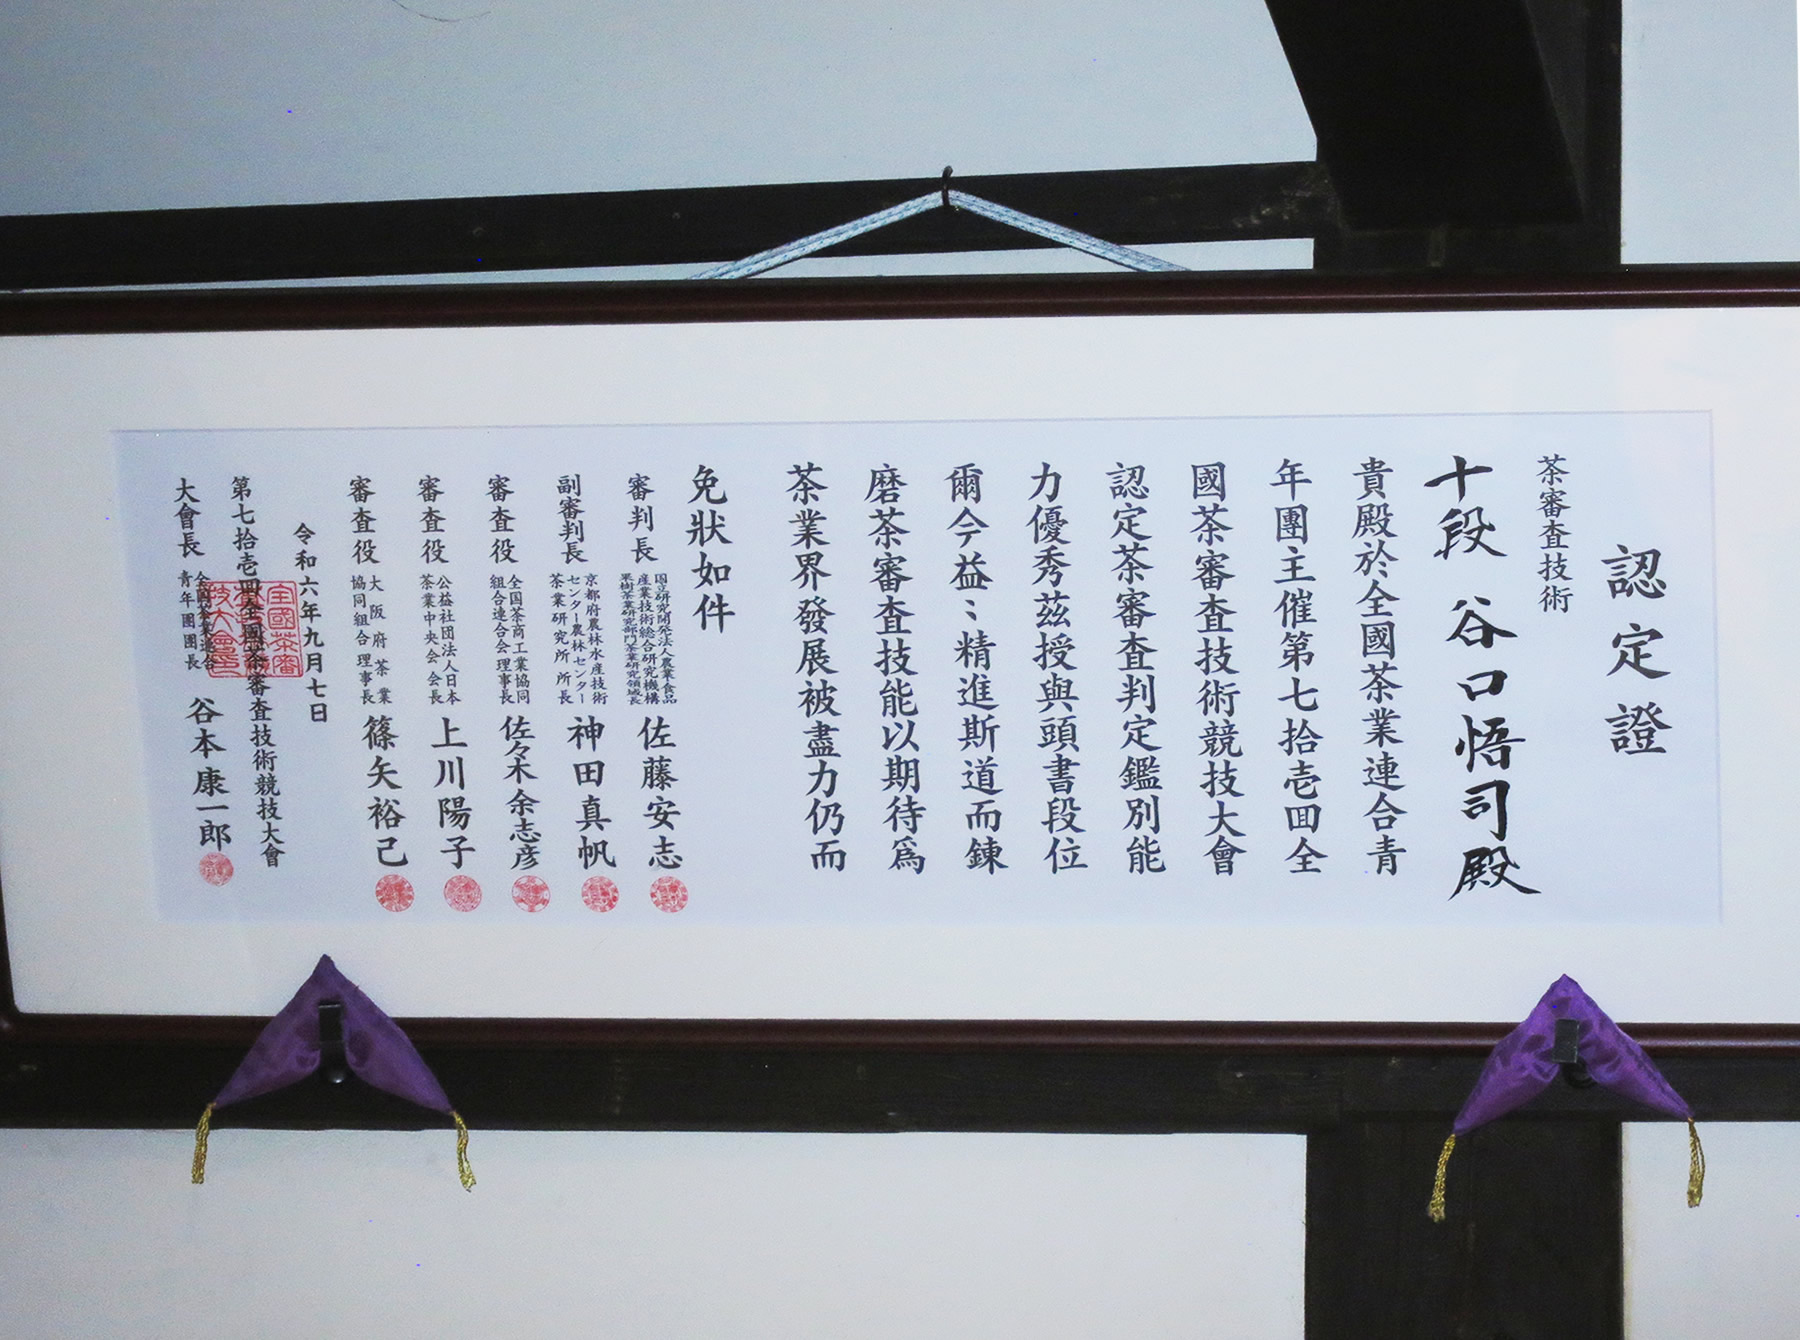 認定證
茶審査技術
十段 谷口悟司殿
貴殿於全國茶業連合青
年團主催第七拾壱回全
國茶審査技術競技大會
認定茶審査判定鑑別能
力優秀茲授與頭書段位
爾今益〻精進斯道而錬
磨茶審査技能以期待爲
茶業界發展被盡力仍而
免狀如件
審判長 国立研究開発法人農業・食品
産業技術総合研究機構
果樹茶業研究部門茶業研究領域長 佐藤安志
副審判長 京都府農林水産技術
センター農林センター
茶業研究所 所長 神田真帆
審査役 全国茶商工業協同
組合連合会 理事長 佐々木余志彦
審査役 公益社団法人日本
茶業中央会 会長 上川陽子
審査役 大阪府茶業
協同組合 理事長 篠矢裕己
令和六年九月七日
第七拾壱回全國茶審査技術競技大會
大會長 全国茶業連合
青年團團長 谷本康一郎